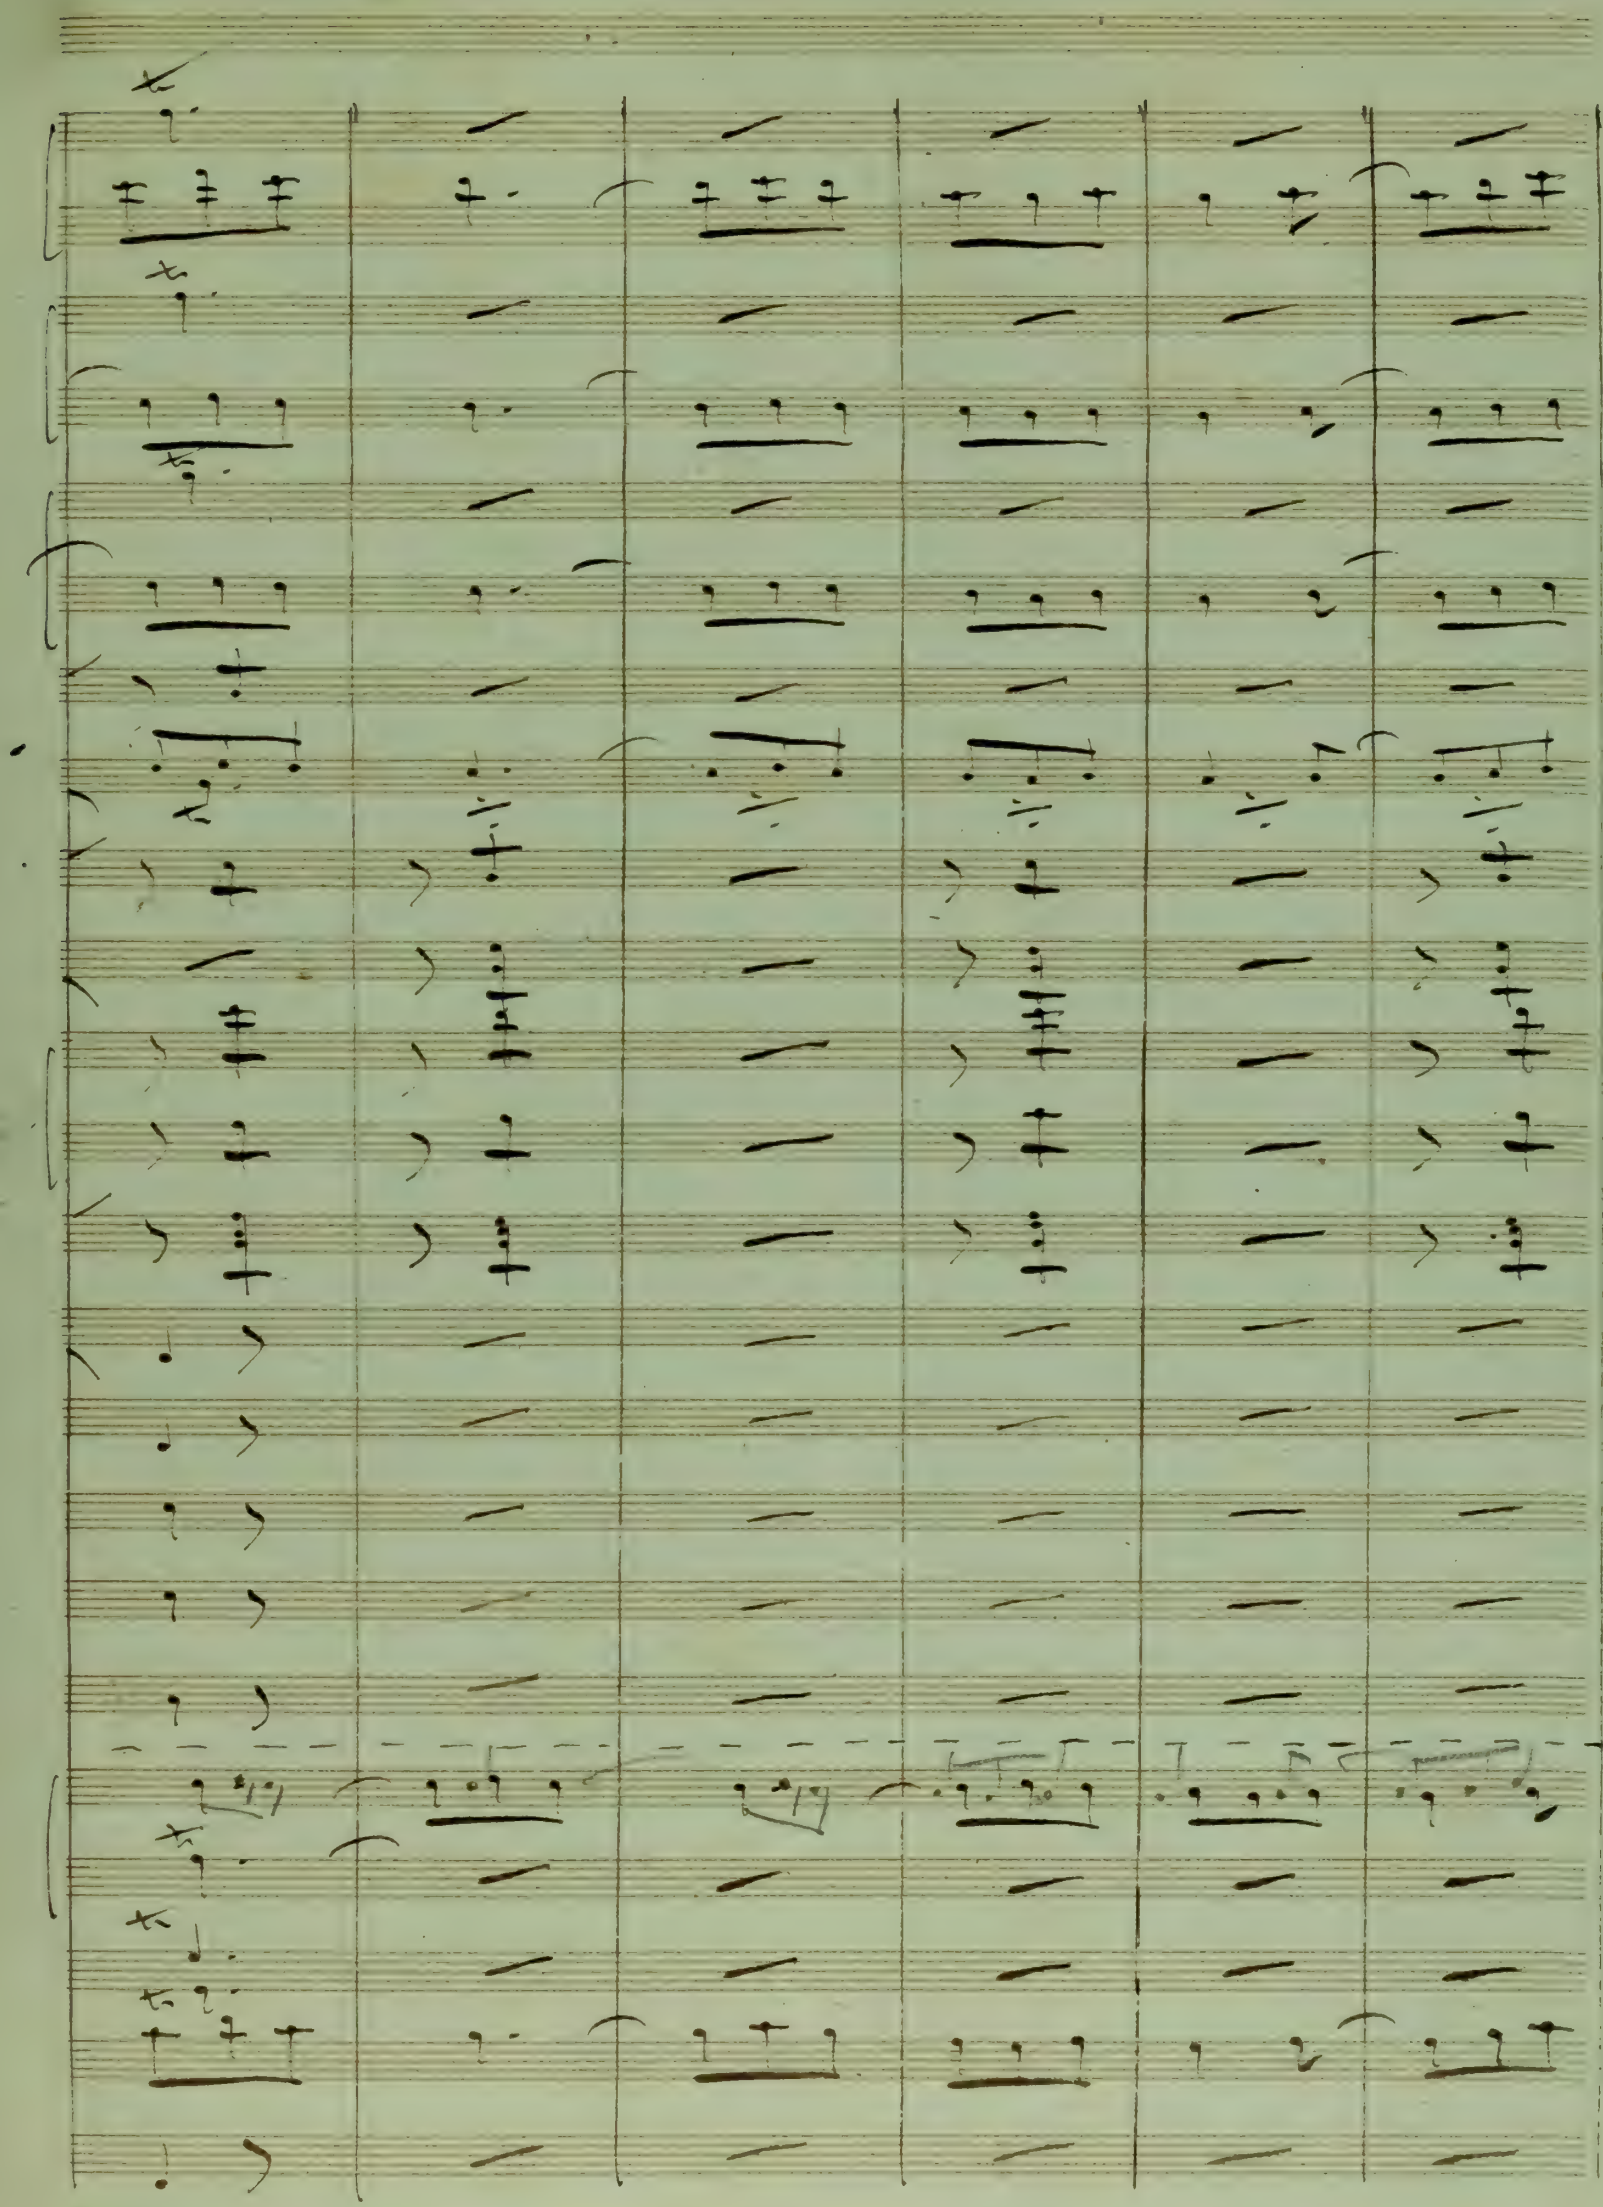 tr
tr
tr
tr
tr
tr
tr